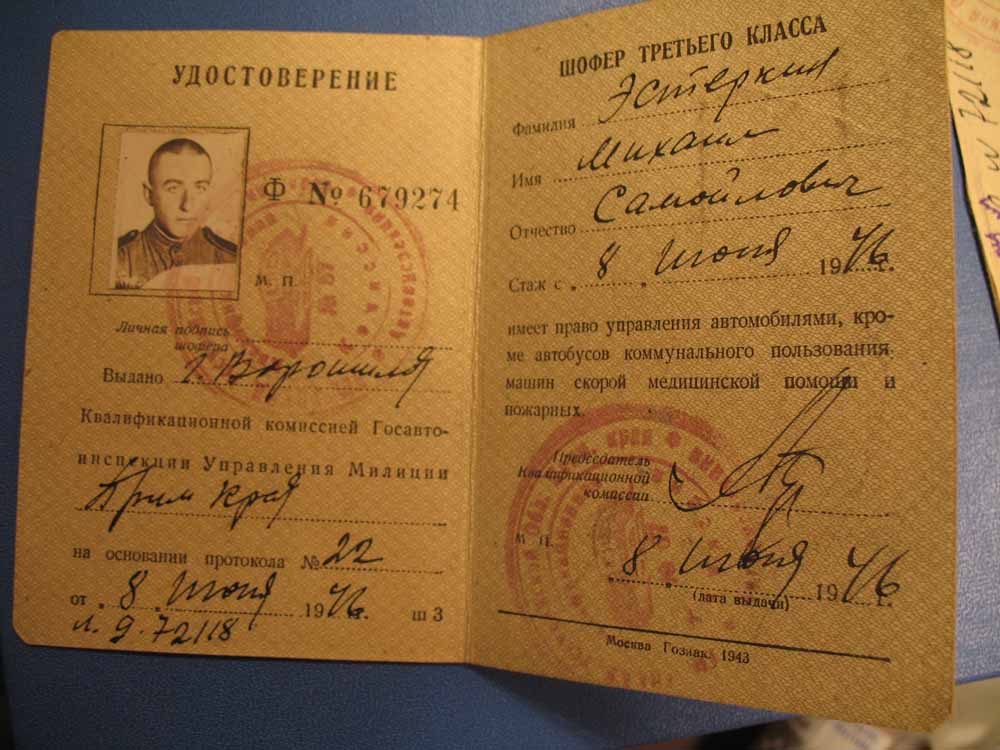 УДОСТОВЕРЕНИЕ
Ф № 679274
М. П.
Личная подпись
шофера
Выдано г. Ворошилов
Квалификационной комиссией Госавто-
инспекции Управления Милиции
Прим края
на основании протокола № 22
от 8 июня 1946 г. ш 3
л. 9. 72118
ШОФЕР ТРЕТЬЕГО КЛАССА
Фамилия Эстеркин
Имя Михаил
Отчество Самойлович
Стаж с 8 июня 1946 г.
имеет право управления автомобилями, кро-
ме автобусов коммунального пользования,
машин скорой медицинской помощи и
пожарных.
Председатель
Квалификационной
комиссии
М. П.
8 июня 1946 г.
(дата выдачи)
Москва Гознак. 1943
72118